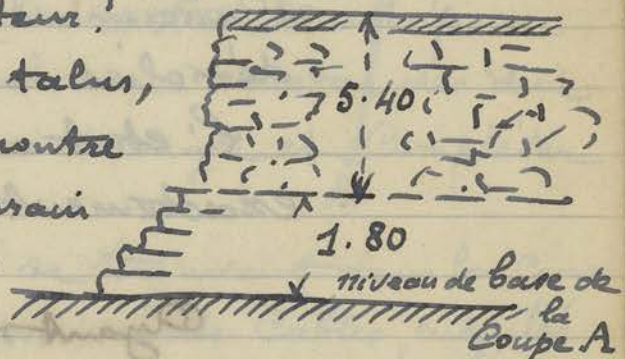 teur.
talus,
5.40
ontre
rain
1.80
niveau de base de
la
Coupe A